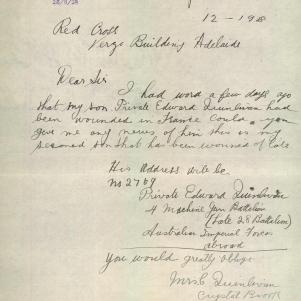 28/8/28
12-1918
Red Cross
Verco Building Adelaide
Dear Sir
I had word a few days ago
that my son Private Edward Quinlivan had
been wounded in France Could you
give me any news of him this is my
second son that has been wounded of late
His Address will be
No 2769
Private Edward Quinlivan
4 Machine Gun Battalion
(Late 28 Battalion)
Australian Imperial Forces
abroad
You would greatly oblige
Mrs C Quinlivan
Crystal Brook